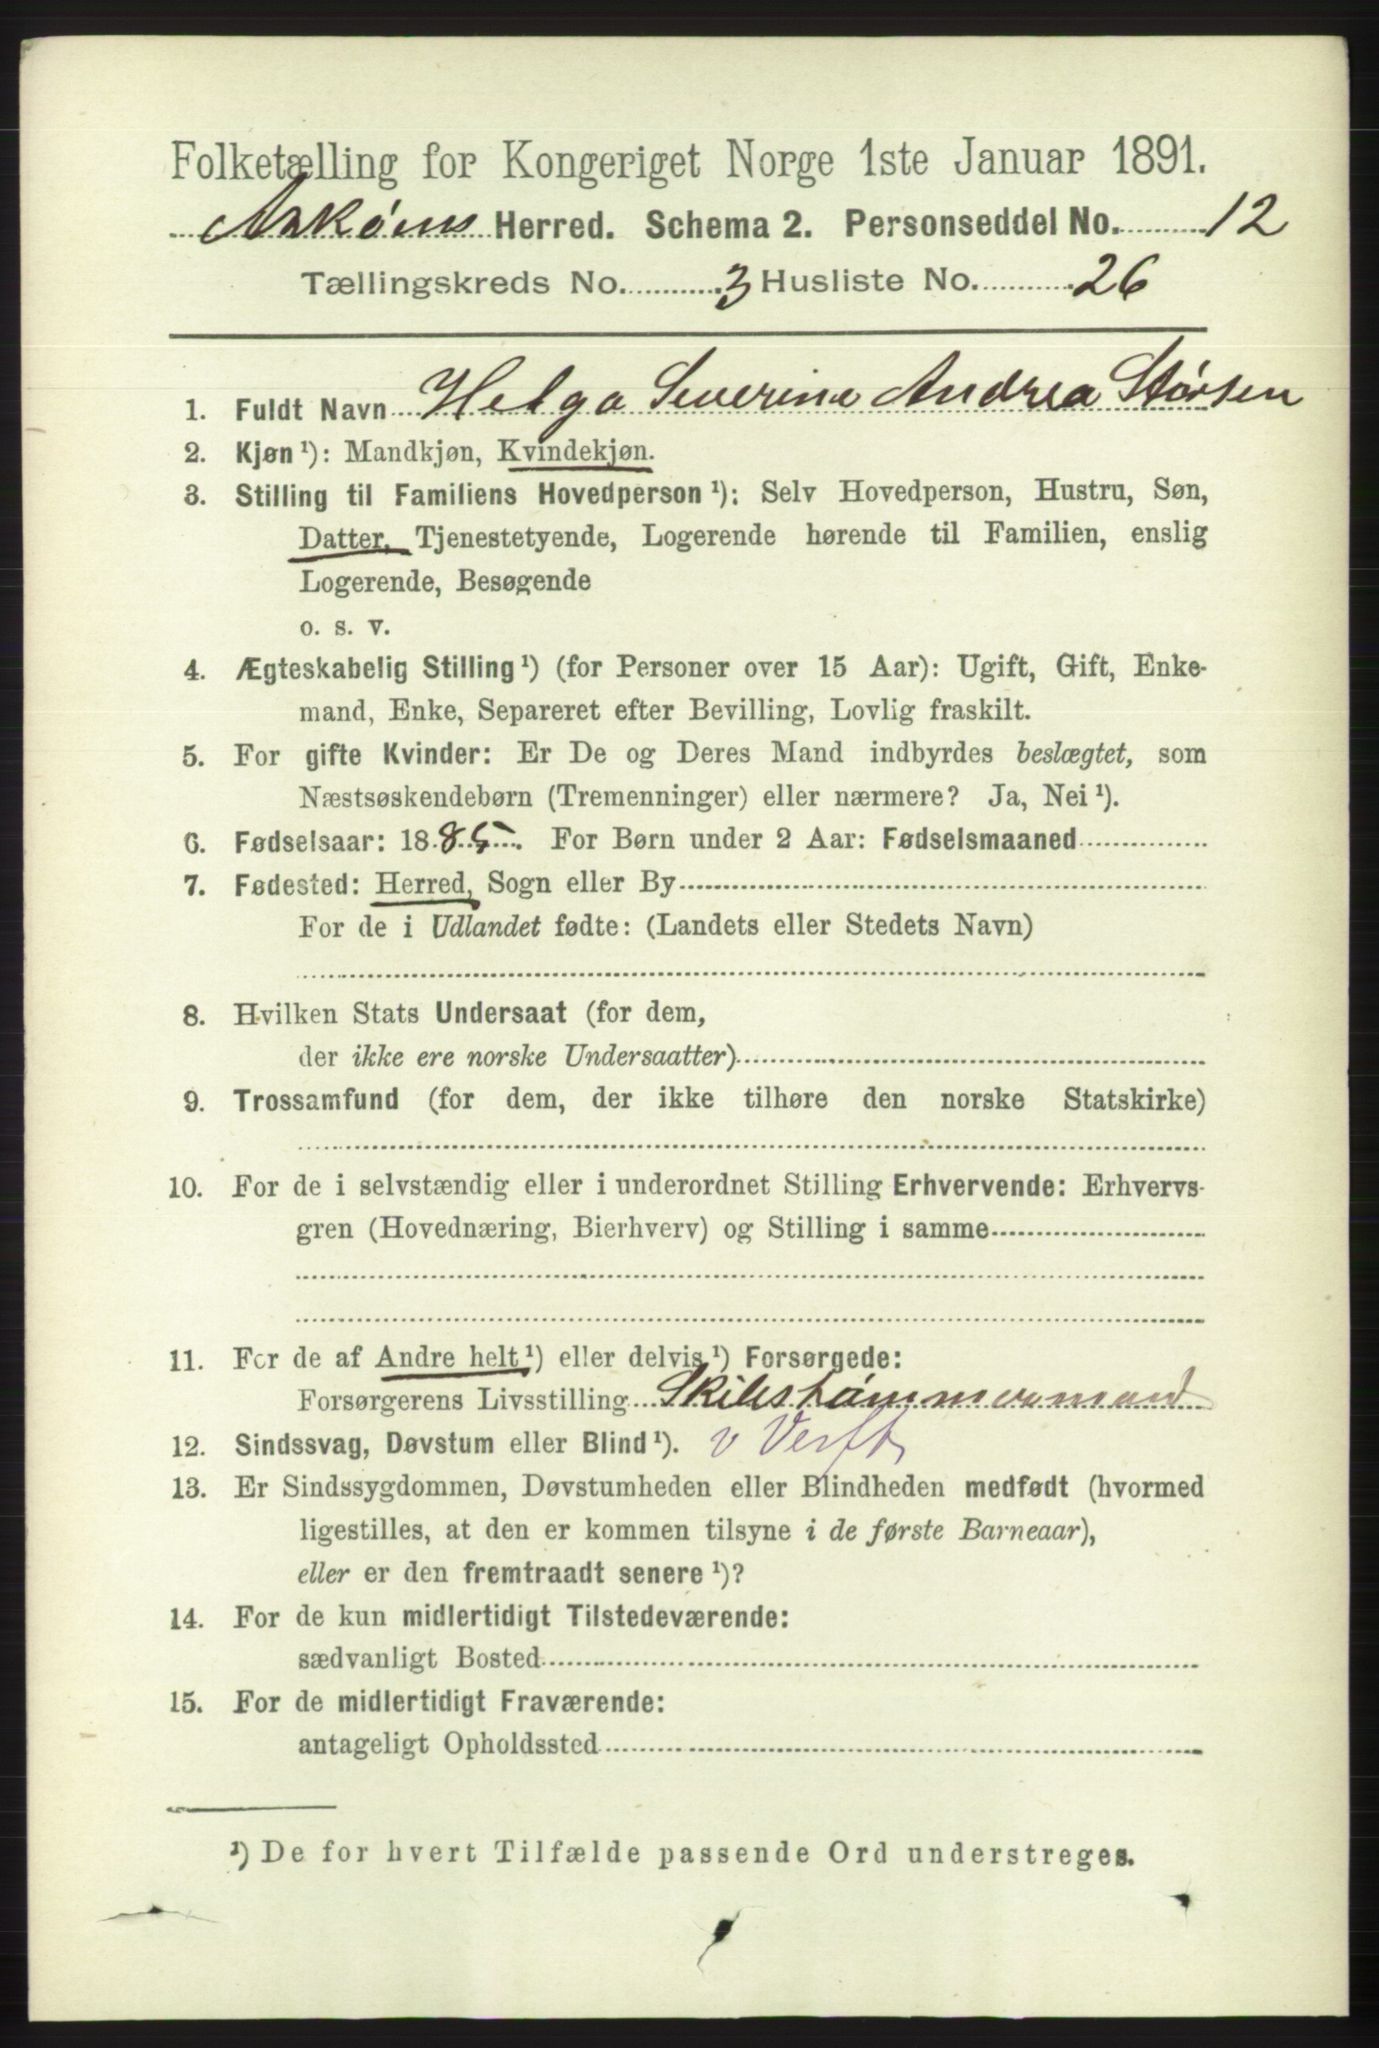 Folketælling for Kongeriget Norge 1ste Januar 1891.
Askøens Herred. Schema 2. Personseddel No. 12
Tællingskreds No. 3 Husliste No. 26
1. Fuldt Navn Helga Severine Andrea Størsen
2. Kjøn ¹): Mandkjøn, Kvindekjøn.
3. Stilling til Familiens Hovedperson ¹): Selv Hovedperson, Hustru, Søn,
Datter, Tjenestetyende, Logerende hørende til Familien, enslig
Logerende, Besøgende
o. s. v.
4. Ægteskabelig Stilling ¹) (for Personer over 15 Aar): Ugift, Gift, Enke-
mand, Enke, Separeret efter Bevilling, Lovlig fraskilt.
5. For gifte Kvinder: Er De og Deres Mand indbyrdes beslægtet, som
Næstsøskendebørn (Tremenninger) eller nærmere? Ja, Nei ¹).
6. Fødselsaar: 1885. For Børn under 2 Aar: Fødselsmaaned
7. Fødested: Herred, Sogn eller By
For de i Udlandet fødte: (Landets eller Stedets Navn)
8. Hvilken Stats Undersaat (for dem,
der ikke ere norske Undersaatter)
9. Trossamfund (for dem, der ikke tilhøre den norske Statskirke)
10. For de i selvstændig eller i underordnet Stilling Erhvervende: Erhvervs-
gren (Hovednæring, Bierhverv) og Stilling i samme
11. For de af Andre helt ¹) eller delvis ¹) Forsørgede:
Forsørgerens Livsstilling Skibstømmermand
12. Sindssvag, Døvstum eller Blind ¹). v Verft
13. Er Sindssygdommen, Døvstumheden eller Blindheden medfødt (hvormed
ligestilles, at den er kommen tilsyne i de første Barneaar),
eller er den fremtraadt senere ¹)?
14. For de kun midlertidigt Tilstedeværende:
sædvanligt Bosted
15. For de midlertidigt Fraværende:
antageligt Opholdssted
¹) De for hvert Tilfælde passende Ord understreges.